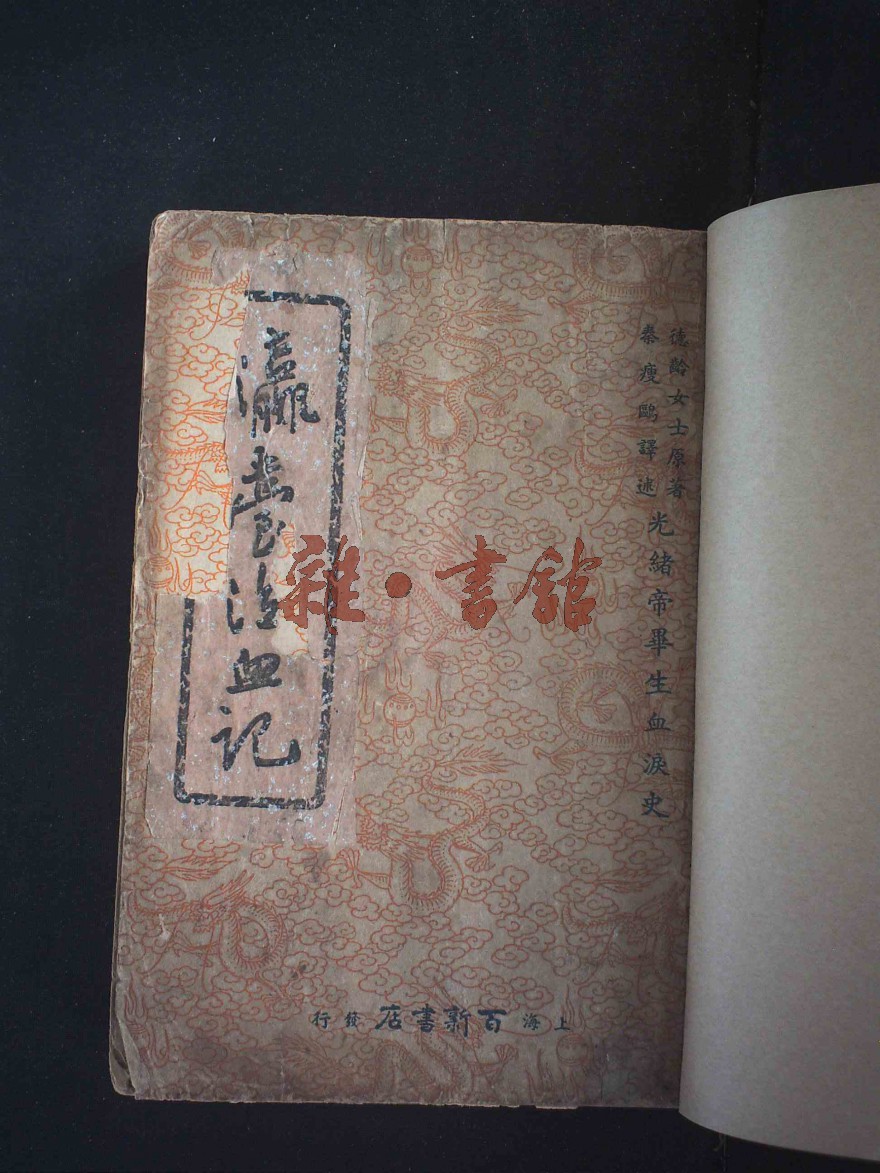 德齡女士原著
秦瘦鷗譯述
光緒帝畢生血淚史
瀛臺泣血記
上海百新書店發行
雜·書館